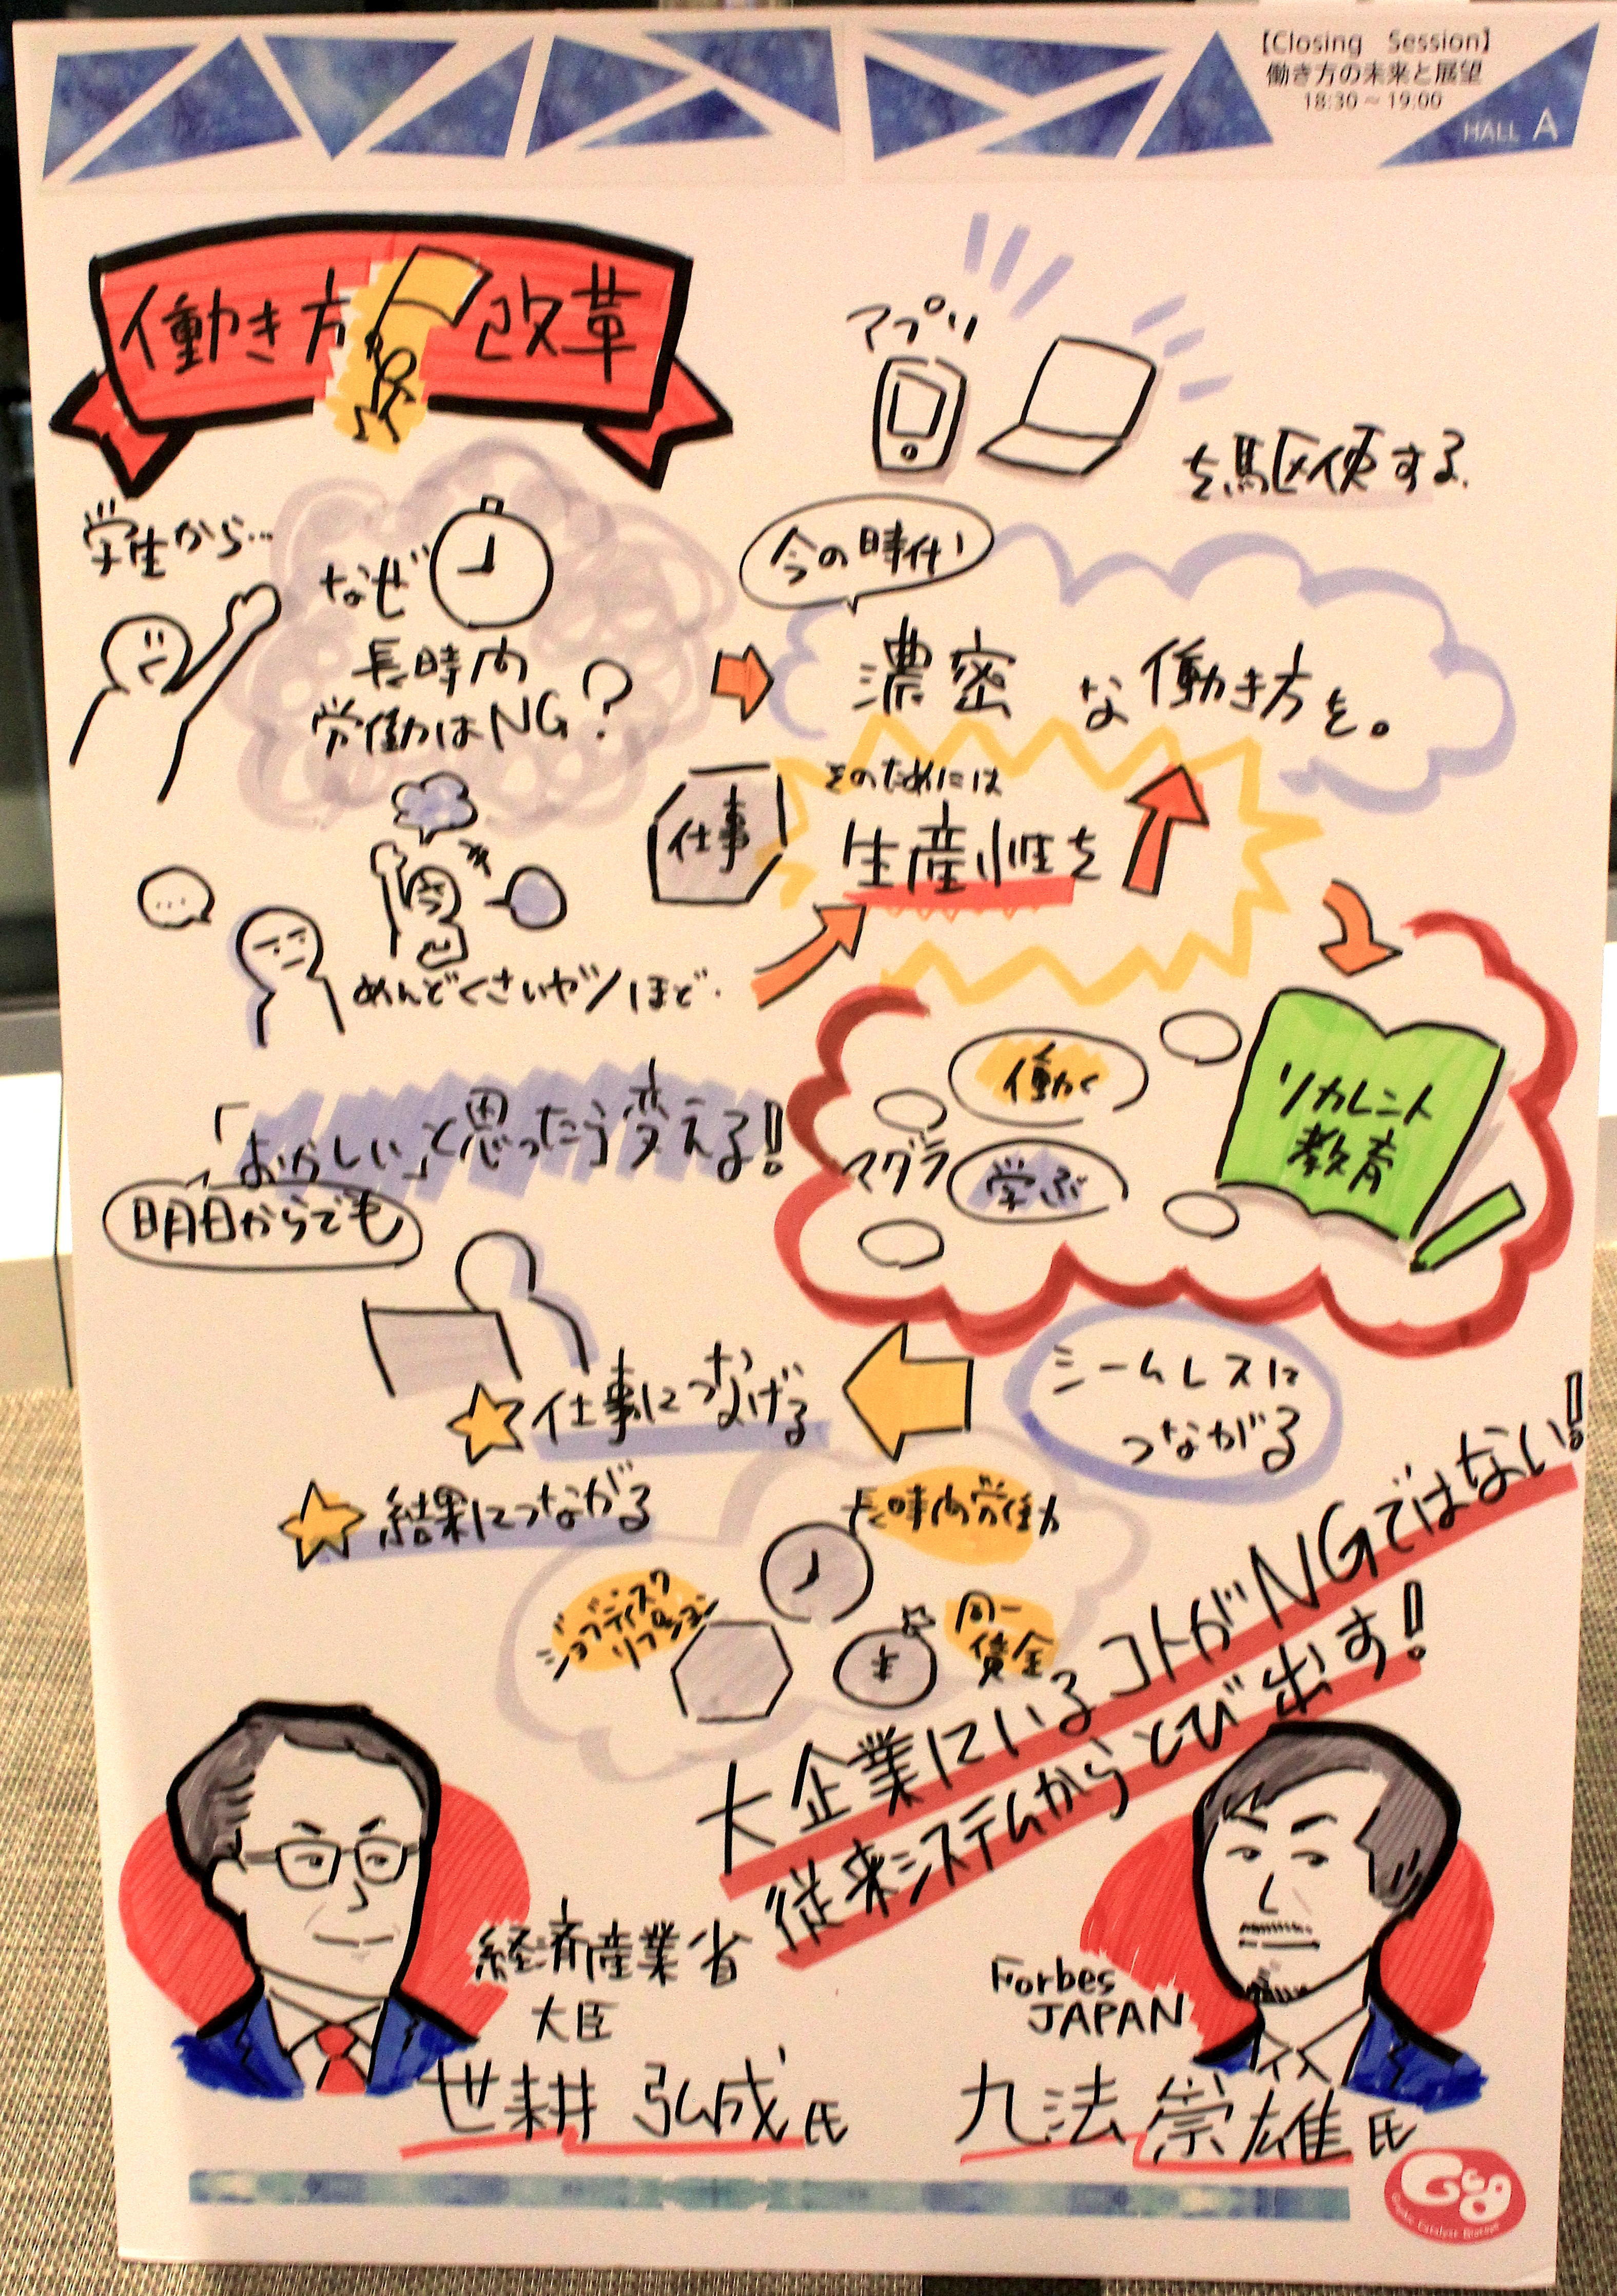 【Closing Session】
働き方の未来と展望
18:30～19:00
HALL A
働き方改革
アプリ
を駆使する
学生から…
なぜ
長時間
労働はNG?
今の時代
濃密な働き方を。
仕事
そのためには
生産性を
…
めんどくさいヤツほど.
「おかしい」と思ったら変える!
明日からでも
働く
マグラ
学ぶ
リカレント
教育
シームレスに
つながる
仕事につなげる
結果につながる
長時間労働
ジョブディスク
リプション
同一
賃金
¥
大企業にいるコトがNGではない!
従来システムからとび出す!
経済産業省
大臣
世耕 弘成氏
Forbes
JAPAN
九法 崇雄氏
Gcg
Graphic Catalyst Biotope